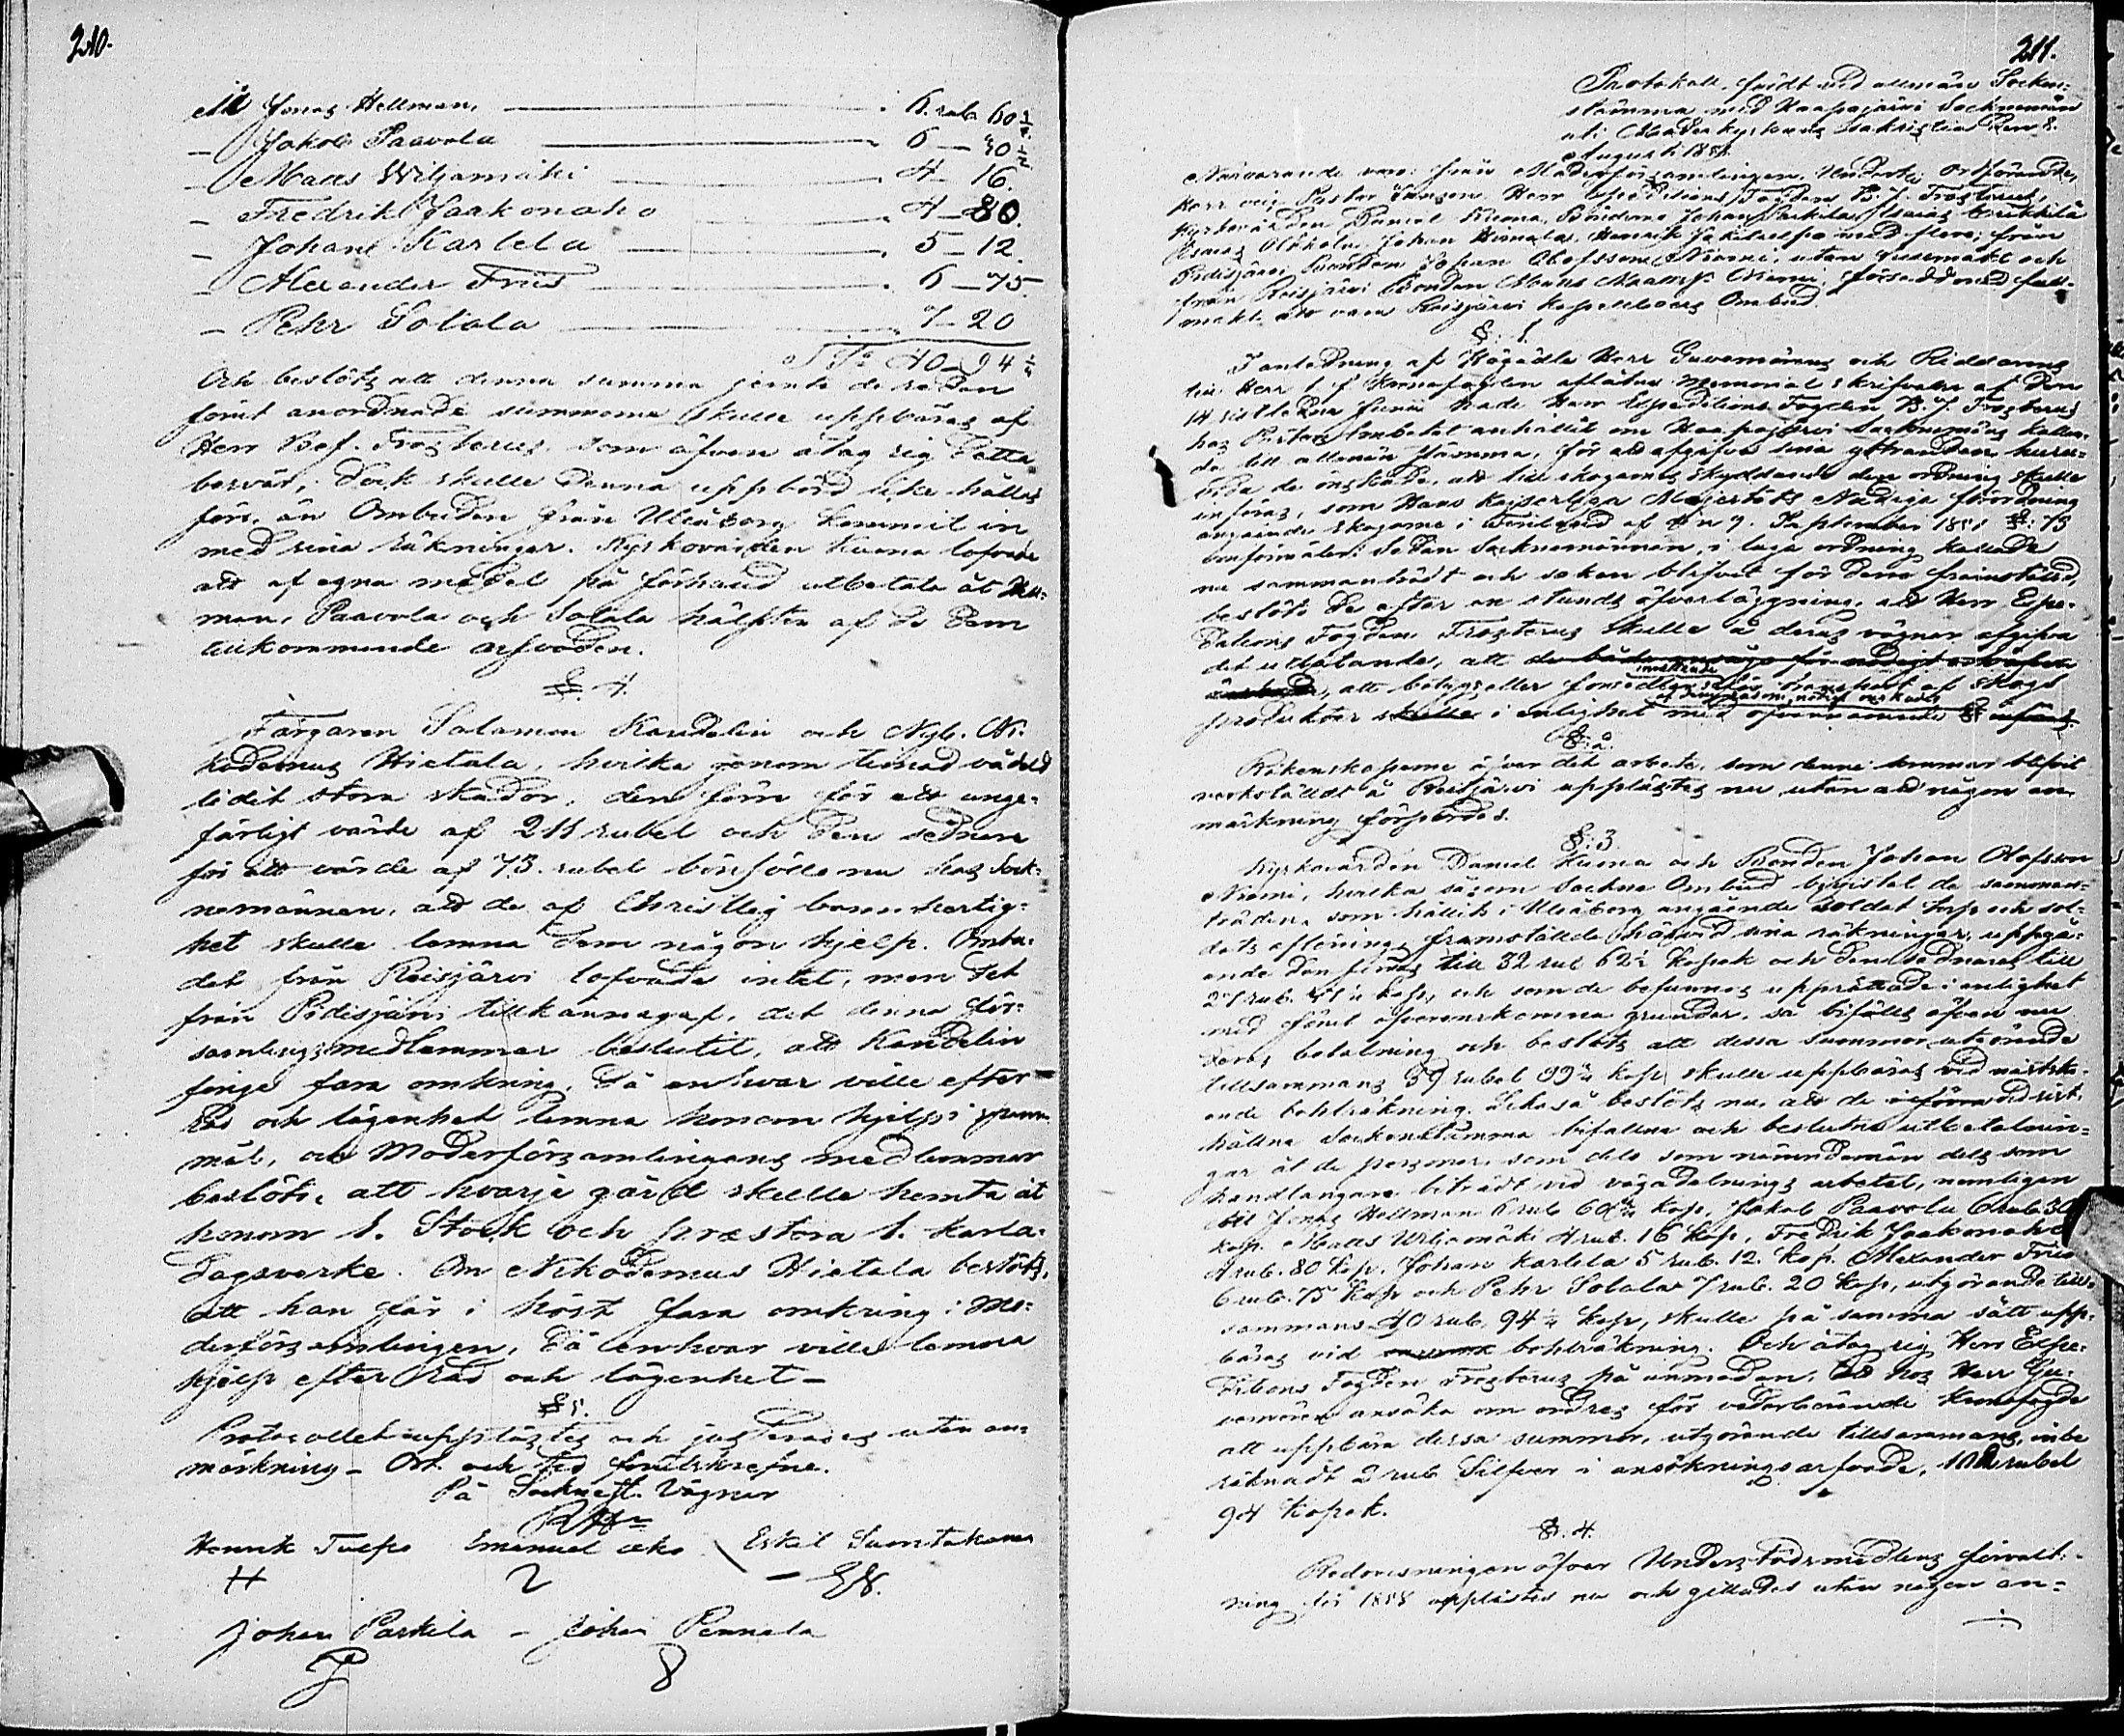 210.
Åt Jonas Hellman, 6. rub. 60 3/4.
- Jakob Paavola 6 - 30 1/2
- Matts Wiljamäki 4 - 16.
- Fredrik Jaakonaho 4 - 80.
- Johan Karlela 5 - 12.
- Alexander Friis 6 - 75.
- Pehr Solala 7 - 20
S:a 40 - 94 1/4
Och beslöts att denna summa jemte de redan
förut anordnade summorna skulle uppbäras af
Herr Bef. Frosterus, som äfven åtog sig detta
besvär, dock skulle denna uppbörd icke hållas
förr, än Ombuden från Uleåborg kommit in
med sina räkningar. Kyrkovärden Kuona lofvade
att af egna medel på förhand utbetala åt Hell-
man, Paavola och Solala hälften af de dem
tillkommande arfvoden.
§. 4.
Färgaren Salamon Kandelin och Nyb. Ni-
kodemus Hietala, hvilka genom timad vådeld
lidit stora skador, den förre för ett unge-
färligt värde af 211 rubel och den sednare
för ett värde af 73. rubel bönföllo nu hos Sock-
nemännen, att de af Christlig barmhertig-
het skulle lemna dem någon hjelp. Ombu-
det från Reisjärvi lofvade intet, men det
från Pidisjärvi tillkännagaf, det denna för-
samlingsmedlemmar beslutit, att Kandelin
finge fara omkring, då enhvar ville efter
Råd och lägenhet lemna honom hjelp i spanne-
mål, och Moderförsamlingens medlemmar
beslöto, att hvarje gård skulle hemta åt
honom 1. Stock och præstera 1. karla-
dagsverke. Om Nikodemus Hietala beslöts,
att han får i höst fara omkring i Mo-
derförsamlingen, då enhvar ville lemna
hjelp efter Råd och lägenhet -
§ 5.
Protocollet upplästes och justerades utan an-
märkning - Ort. och tid förutskrefne.
På Socknest. Vägnar
Henrik Tuepo Emanuel Eskil
H 2
Johan Parkila - Johan Pennala
P 8
211.
Protokoll, fördt vid allmän Socken-
stämma med Haapajärvi Socknemän
uti Moderkyrkans Sakristia den 8.
Augusti
Närvarande voro: från Moderförsamlingen, Undert. Ordförande,
Herr Expeditions Fogden B. J. Frosterus,
Kyrkovärden Daniel Kuona, Bönderne Johan Parkila,
Johan Himala, Henrik med flere; från
Pidisjärvi Bonden Johan Olofsson Niemi, utan fullmakt och
från Reisjärvi Bonden Måns Niemi, försedd med full-
makt att vara Reisjärvi Kapellboers Ombud.
§. 1.
I anledning af Högädle Herr Guvernörens och Riddarens
till Herr t. f. Kronofogden aflåtna Memorial skrifvelse af den
14 sistledne Junii hade Herr Expeditions Fogden B. J. Frosterus
hos Pastors Embetet anhållit om Haapajärvi Socknemäns kallan-
de till allmän stämma, för att afgifva sina yttranden, huru-
vida de önskade, att till skogarnes skyddande den ordning skulle
införas, som Hans Kejserliga Majestäts Nådiga förordning
angående skogarne i Finland af den 9. September 1851 §. 73
omförmäler. Sedan Socknemännen, i laga ordning kallade
nu sammanträdt och saken blifvit för dem framställd,
beslöto de efter en stunds öfverläggning, att Herr Expe-
ditions Fogden Frosterus skulle å deras vägnar afgifva
det utlåtande, att
att betygs eller af skogs
produkter i enlighet med ofvannämnde §
§. 2.
Räkenskaperne öfver det arbete, som denne sommar blifvit
verkställdt å Reisjärvi upplästes nu, utan att någon an-
märkning förspordes.
§: 3.
Kyrkovärden Daniel Kuona och Bonden Johan Olofsson
Niemi, hvilka såsom Sockne Ombud bivistat de samman-
träden, som hållits i Uleåborg angående soldat torp och sol-
dats aflöning, framställde härvid sina räkningar, uppgå-
ende den förres till 32 rub 62 1/2 kopek och den sednares till
kop, och som de befunnos upprättade i enlighet
med förut öfverenskomna grunder, så bifölls äfven nu
deras betalning och beslöts att dessa summor, utgörande
tillsammans 59 rubel 99 3/4 kop, skulle uppbäras vid nästsko-
ende bohlräkning. Likaså beslöts nu, att de vid sist-
hållna Sockenstämma bifallna och beslutna utbetalnin-
gar åt de personer, som dels som nämndemän dels som
handlangare biträdt vid vägadelnings arbetet, nemligen
Åt Jonas Hellman 6 rub 60 3/4 kop, Jakob Paavola 6 rub. 30 1/2
kop. Matts Wiljamäki 4 rub. 16 kop, Fredrik Jaakonaho
4 rub. 80 kop. Johan Karlela 5 rub. 12. kop. Alexander Friis
6 rub. 75 kop och Pehr Solala 7 rub. 20 kop, utgörande till-
sammans 40 rub, 94 1/4 kop, skulle på samma sätt upp-
bäras vid bohlräkning. Och åtog sig Herr Expe-
ditions Fogden Frosterus på anmodan, att hos Herr Gu-
vernören ansöka om ordres för vederbörande Kronofogde
att uppbära dessa summor, utgörande tillsammans, inbe-
räknadt 2 rub Silfver i ansökningsarfvode, 102 rubel
94 kopek.
§. 4.
Redovisningen öfver Understödsmedlens förvalt-
ning för 1858 upplästes nu och gillades utan någon an-